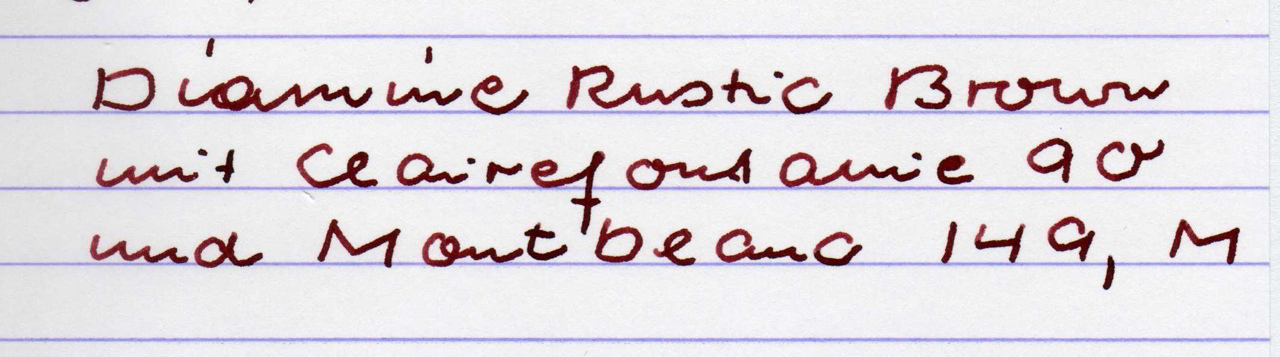 Diamine Rustic Brown
mit Clairefontaine 90
und Montblanc 149, M